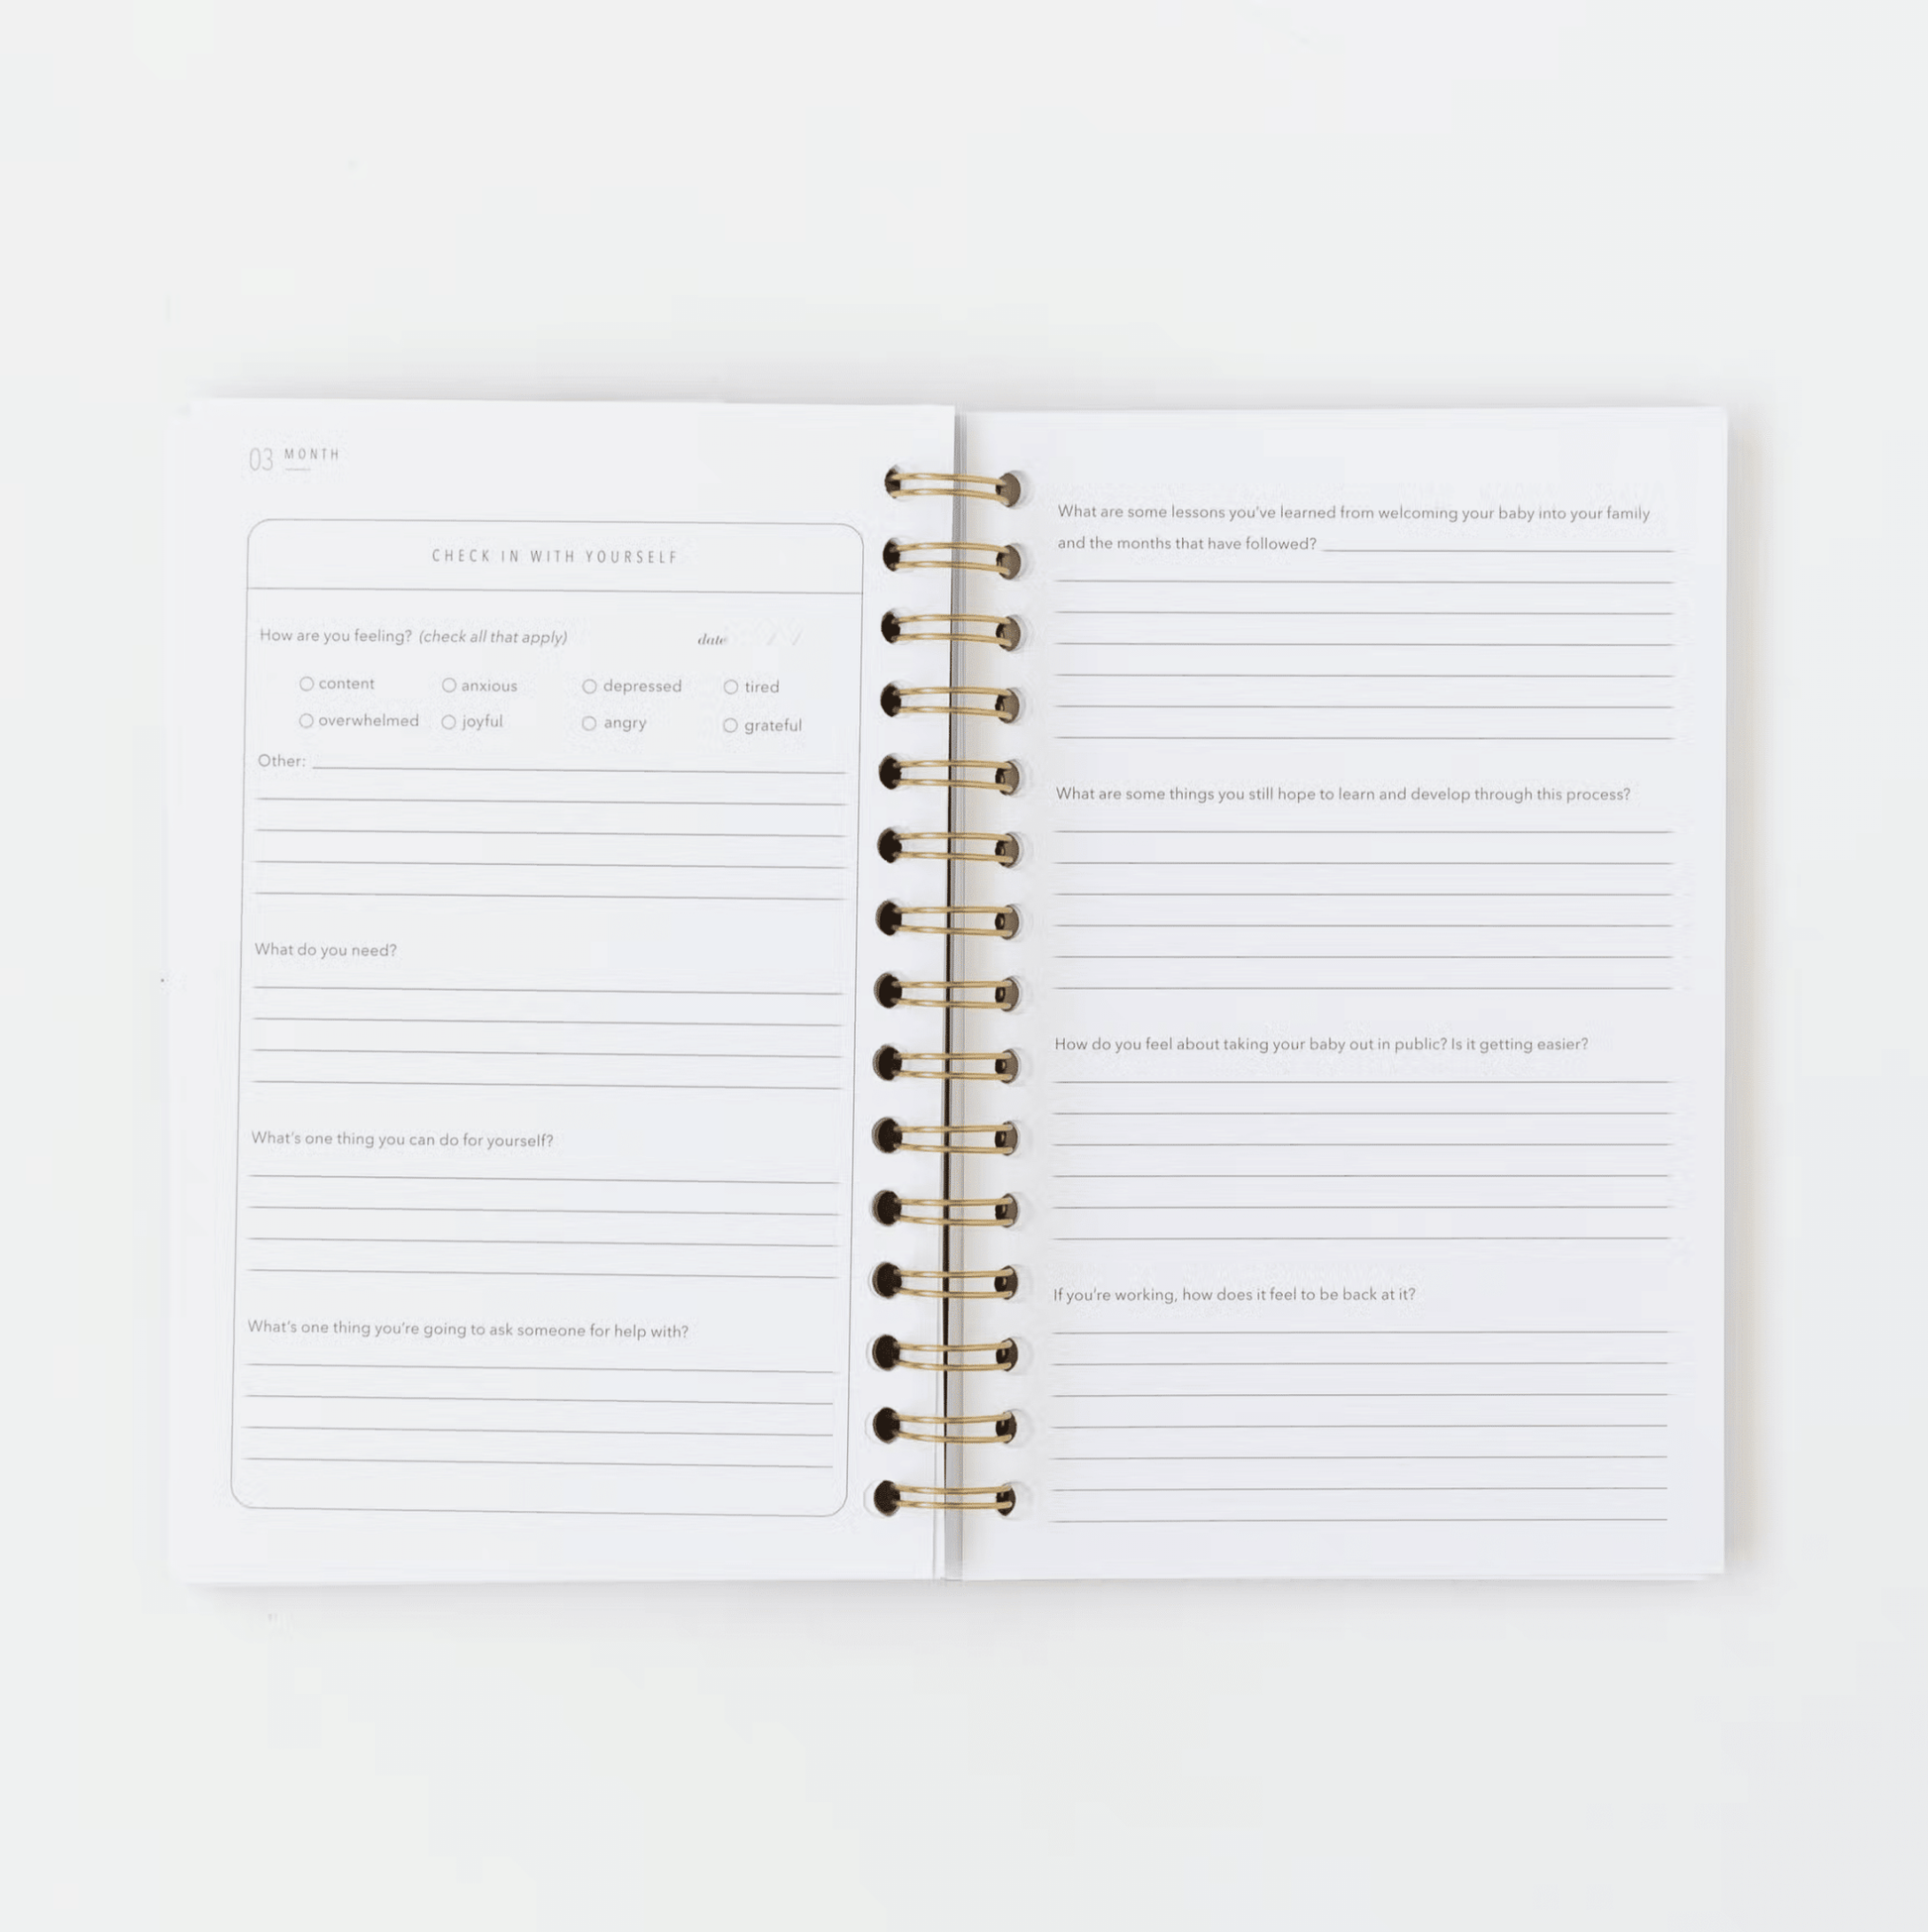 03 MONTH
CHECK IN WITH YOURSELF
How are you feeling? (check all that apply) date / /
content anxious depressed tired
overwhelmed joyful angry grateful
Other:
What do you need?
What's one thing you can do for yourself?
What's one thing you're going to ask someone for help with?
What are some lessons you've learned from welcoming your baby into your family
and the months that have followed?
What are some things you still hope to learn and develop through this process?
How do you feel about taking your baby out in public? Is it getting easier?
If you're working, how does it feel to be back at it?